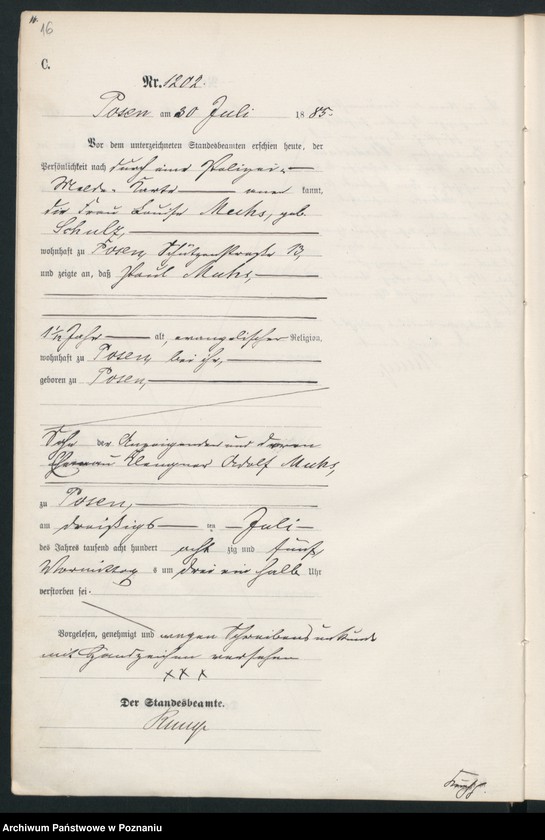 16
C.
Nr. 1202.
Posen am 30 Juli 1885.
Vor dem unterzeichneten Standesbeamten erschien heute, der
Persönlichkeit nach durch eine Polizei-
Melde-Karte kannt,
die Frau Louise Muhs, geb.
Schulz,
wohnhaft zu Posen, Schützenstraße 13,
und zeigte an, daß Paul Muhs,
1½ Jahr alt, evangelischer Religion,
wohnhaft zu Posen, bei ihr,
geboren zu Posen,
Sohn der Anzeigenden und deren
Ehemann Klempner Adolf Muhs,
zu Posen,
am dreißigsten Juli
des Jahres tausend acht hundert acht zig und fünf
Vormittags um drei ein halb Uhr
verstorben sei.
Vorgelesen, genehmigt und wegen Schreibensunkunde
mit Handzeichen versehen
xxx
Der Standesbeamte.
Archiwum Państwowe w Poznaniu